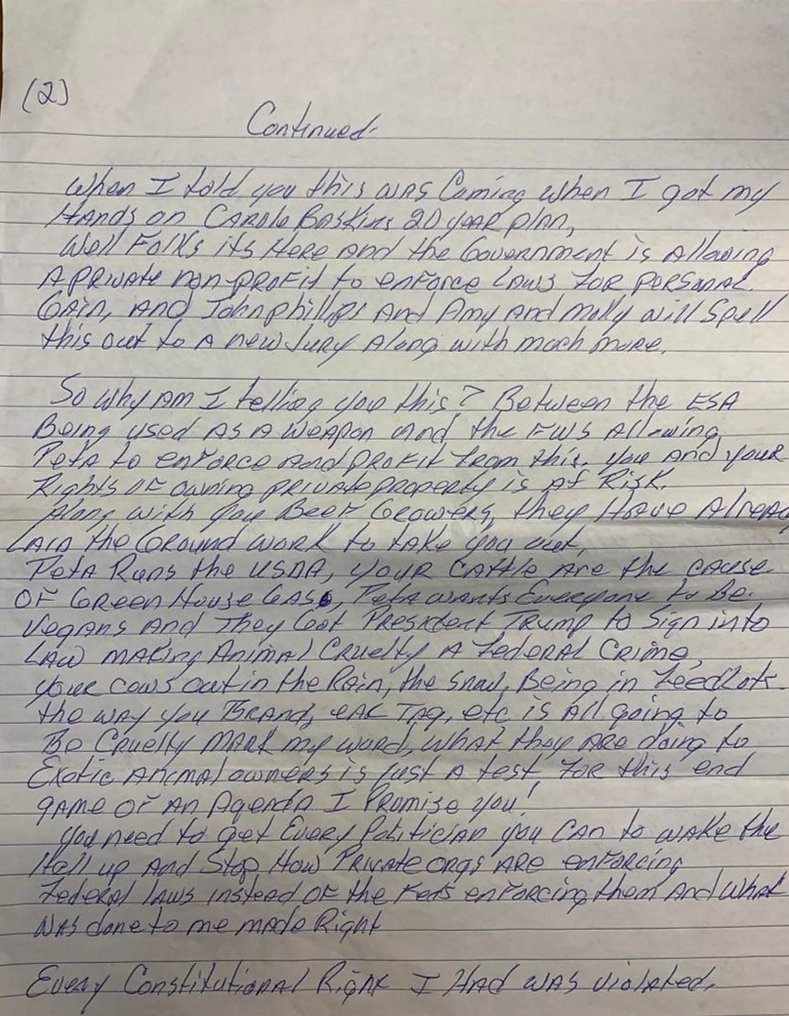 (2)
Continued.
When I told you this was Coming when I got my
Hands on Carole Baskins 20 year plan,
Well Folks its Here and the Government is Allowing
A private non-profit to enforce Laws for personal
Gain, and John phillips And Amy and Molly will Spell
this out to A new Jury Along with much more.
So why Am I telling you this? Between the ESA
Being used as a weapon and the FWS Allowing
Peta to enforce and profit from this. you And your
Rights of owning private property is at Risk.
Along with you Beef Growers, they Have Already
Laid the Ground work to take you out,
Peta Runs the USDA, your cattle Are the cause
OF Green House GAS, Peta wants Everyone to Be
Vegans And They Got President Trump to Sign into
Law making Animal Cruelty A Federal Crime,
your cows out in the Rain, the Snow, Being in Feedlots.
the way you Brand, ear Tag, etc is All going to
Be Cruelty Mark my word, What they Are doing to
Exotic Animal owners is just A test for this end
game of An Agenda I Promise you!
you need to get Every Politician you Can to wake the
Hell up And Stop How Private orgs Are enforcing
Federal laws instead of the Feds enforcing them And What
was done to me made Right
Every Constitutional Right I Had was violated.